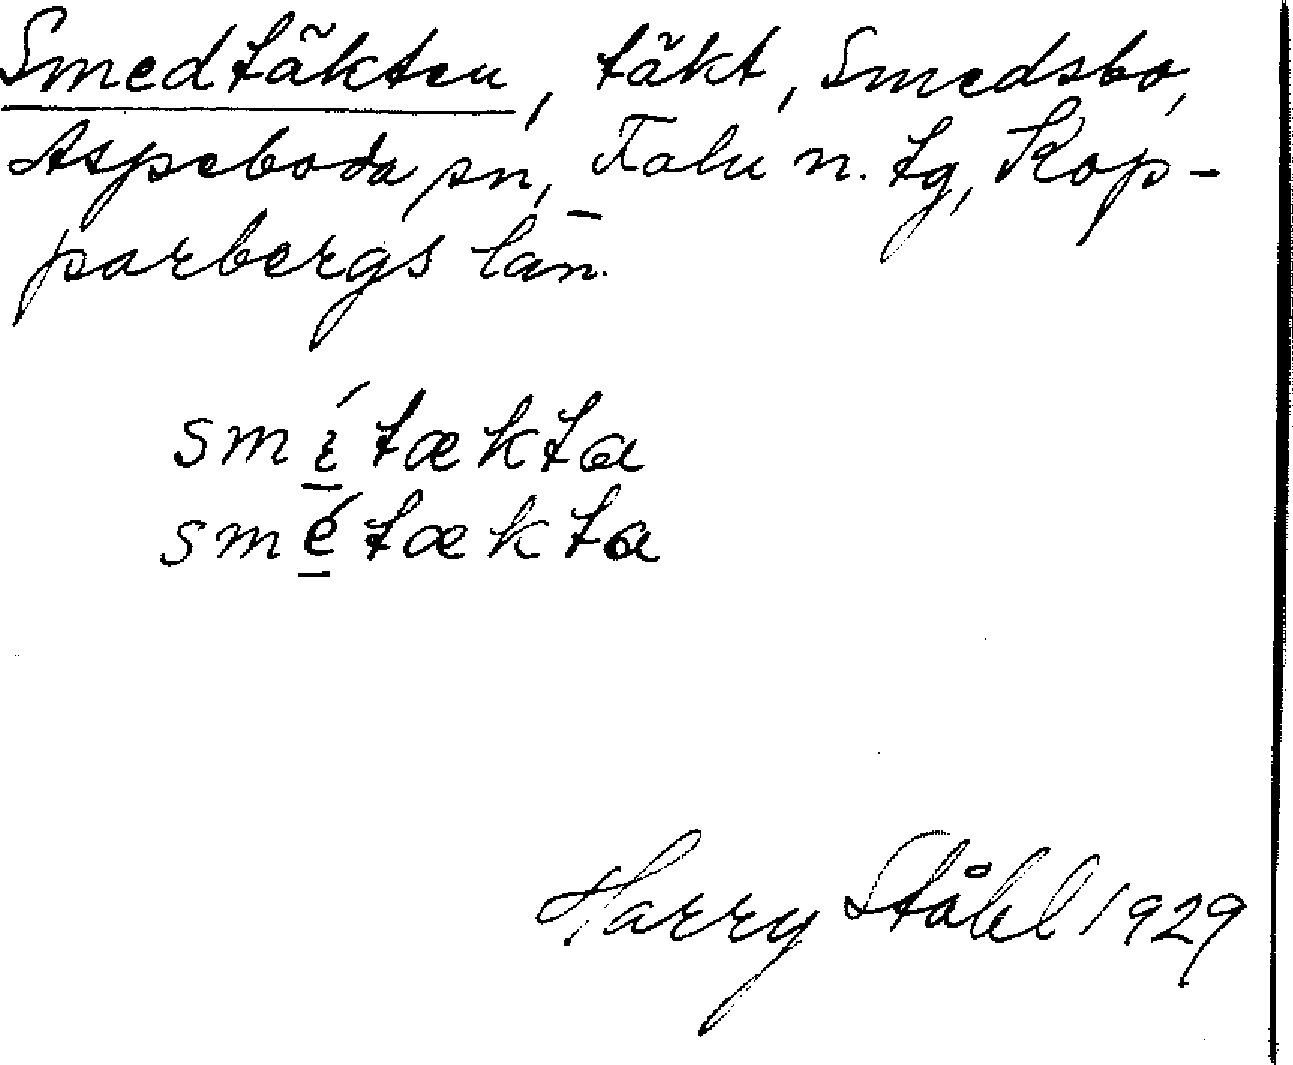 Smedtäkten, täkt, Smedsbo,
Aspeboda sn, Falu n. tg, Kop-
parbergs län.
smí̱tækta
smé̱tækta
Harry Ståhl 1929